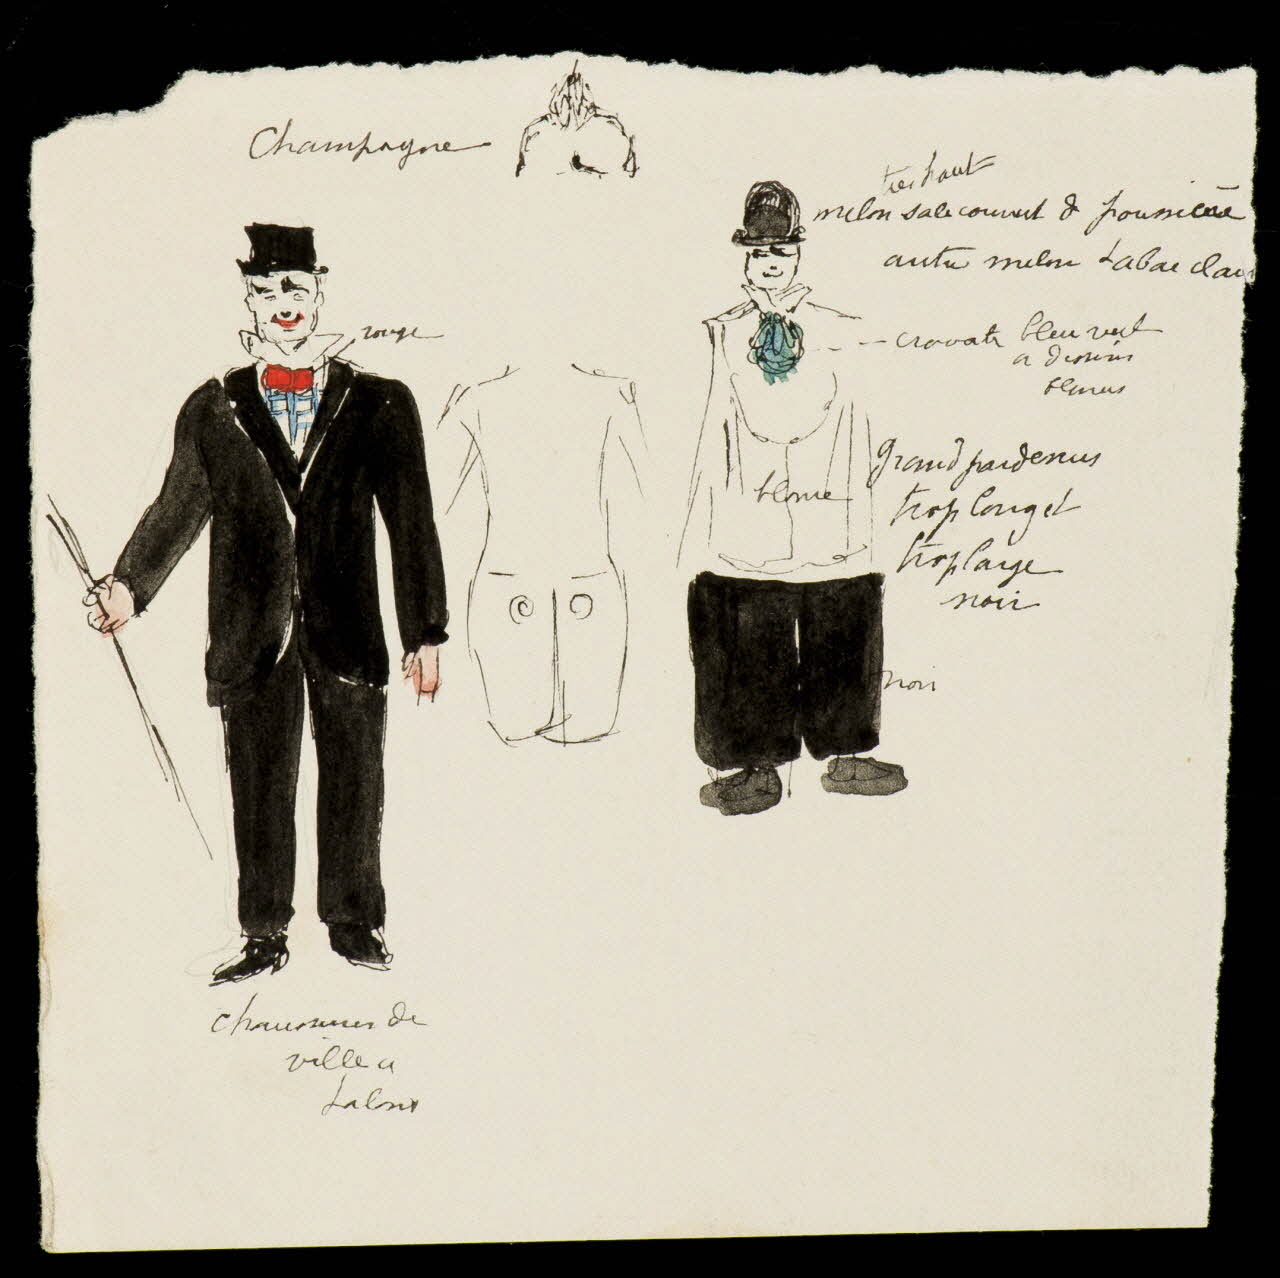 Champagne
très haut
melon sale couvert de poussière
autre melon tabac clair
rouge
cravate bleu vert
a dessins
grand pardessus
trop long et
trop large
noir
noir
chaussures de
ville a
talons